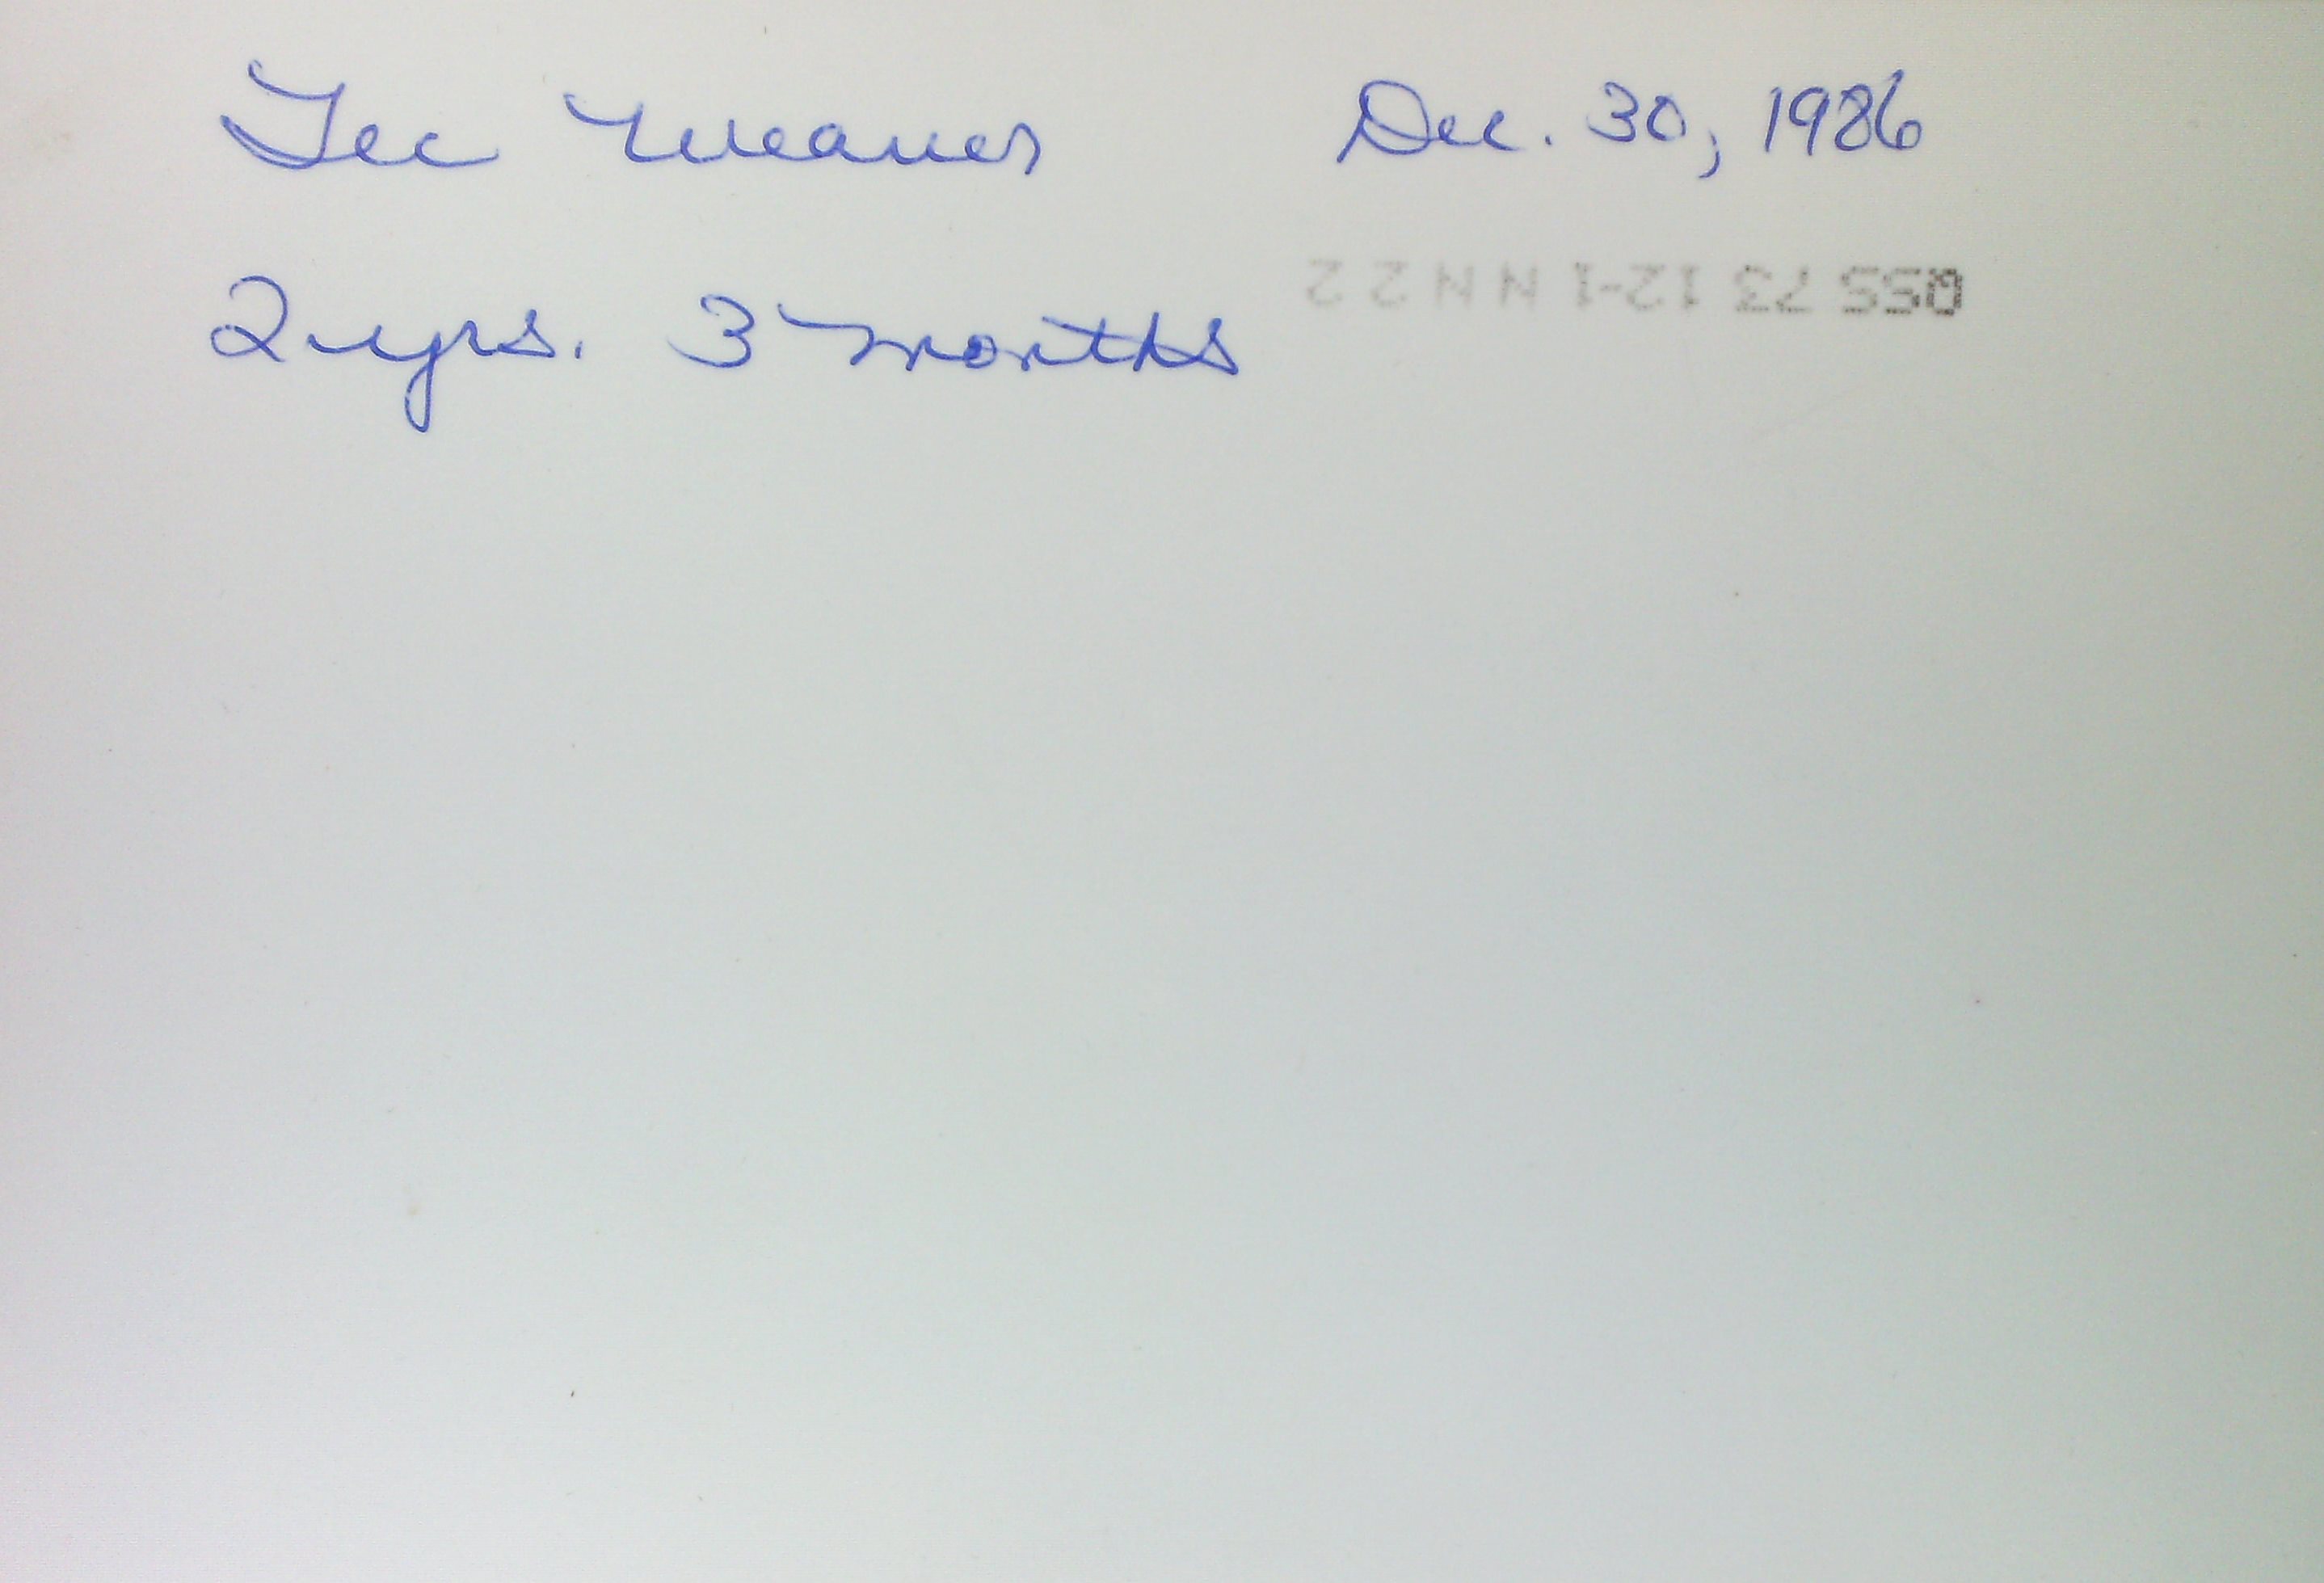 Tec Weaver Dec. 30, 1986
2 yrs. 3 months
Q55 73 12-1 N N 2 2